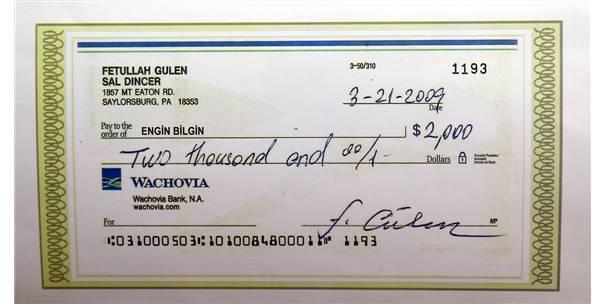 FETULLAH GULEN
SAL DINCER
1857 MT EATON RD.
SAYLORSBURG, PA 18353
3-50/310
1193
3-21-2009
Date
Pay to the
order of
ENGIN BİLGİN
$ 2,000
Two thousand and 00/-
Dollars
Security Features
Included.
Details on Back.
WACHOVIA
Wachovia Bank, N.A.
wachovia.com
For
f. Gülen
MP
⑆031000503⑆1010084800011⑈ 1193